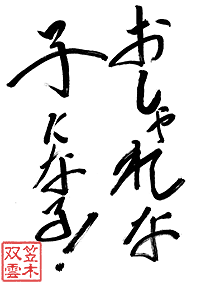 おしゃれな
子になる!
笠木
双雲